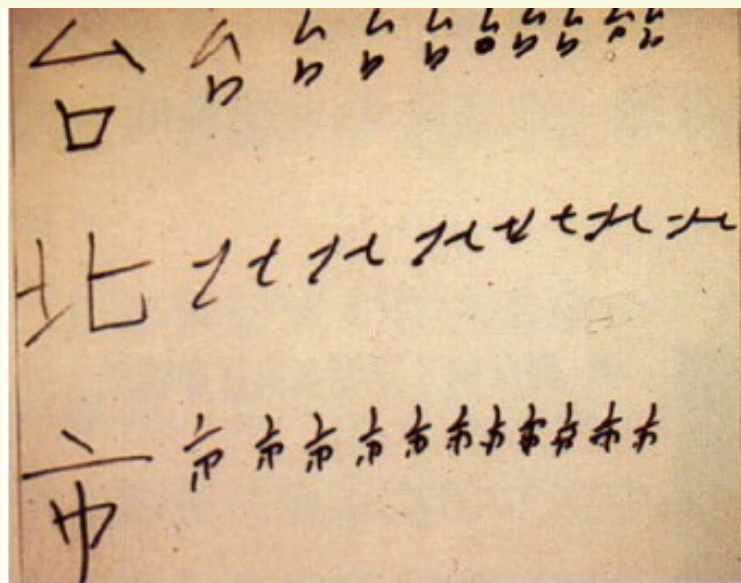 台台台台台台台台台台
北北北北北北北
市市市市市市市市市市市市